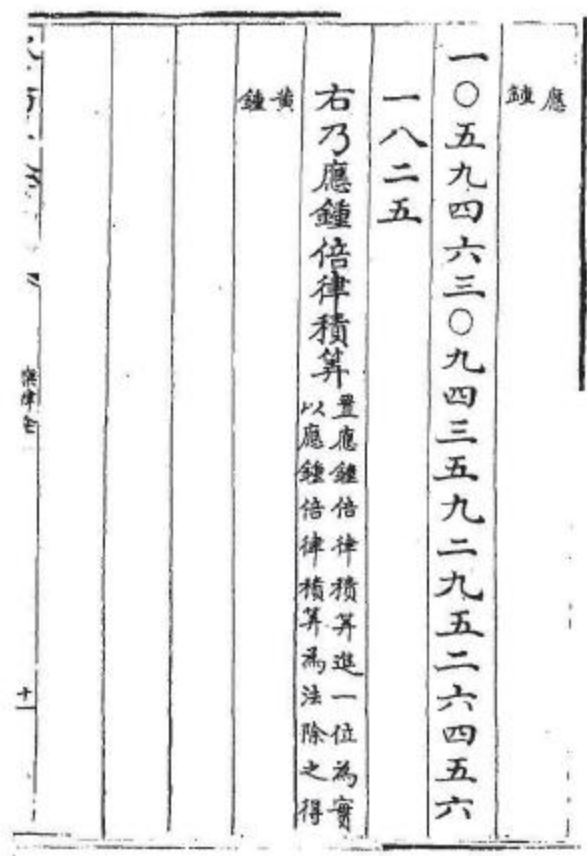 應鍾
一〇五九四六三〇九四三五九二九五二六四五六
一八二五
右乃應鍾倍律積筭
置應鍾倍律積筭進一位為實
以應鍾倍律積筭為法除之得
黃鍾
十一